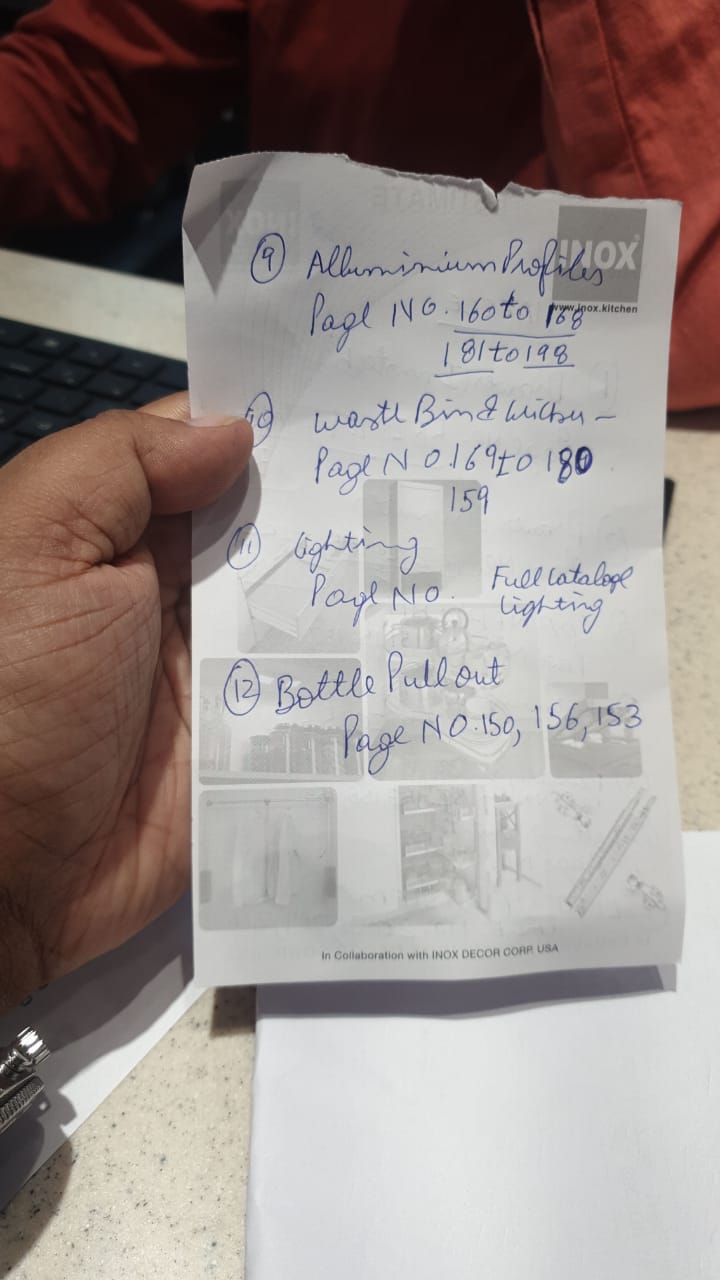 INOX
www.inox.kitchen
9 Alluminium Profiles
Page NO. 160 to 168
181 to 198
10 Waste Bin &
Page NO. 169 to 180
159
11 lighting
Page NO. Full Cataloge
lighting
12 Bottle Pull out
Page NO. 150, 156, 153
In Collaboration with INOX DECOR CORP. USA